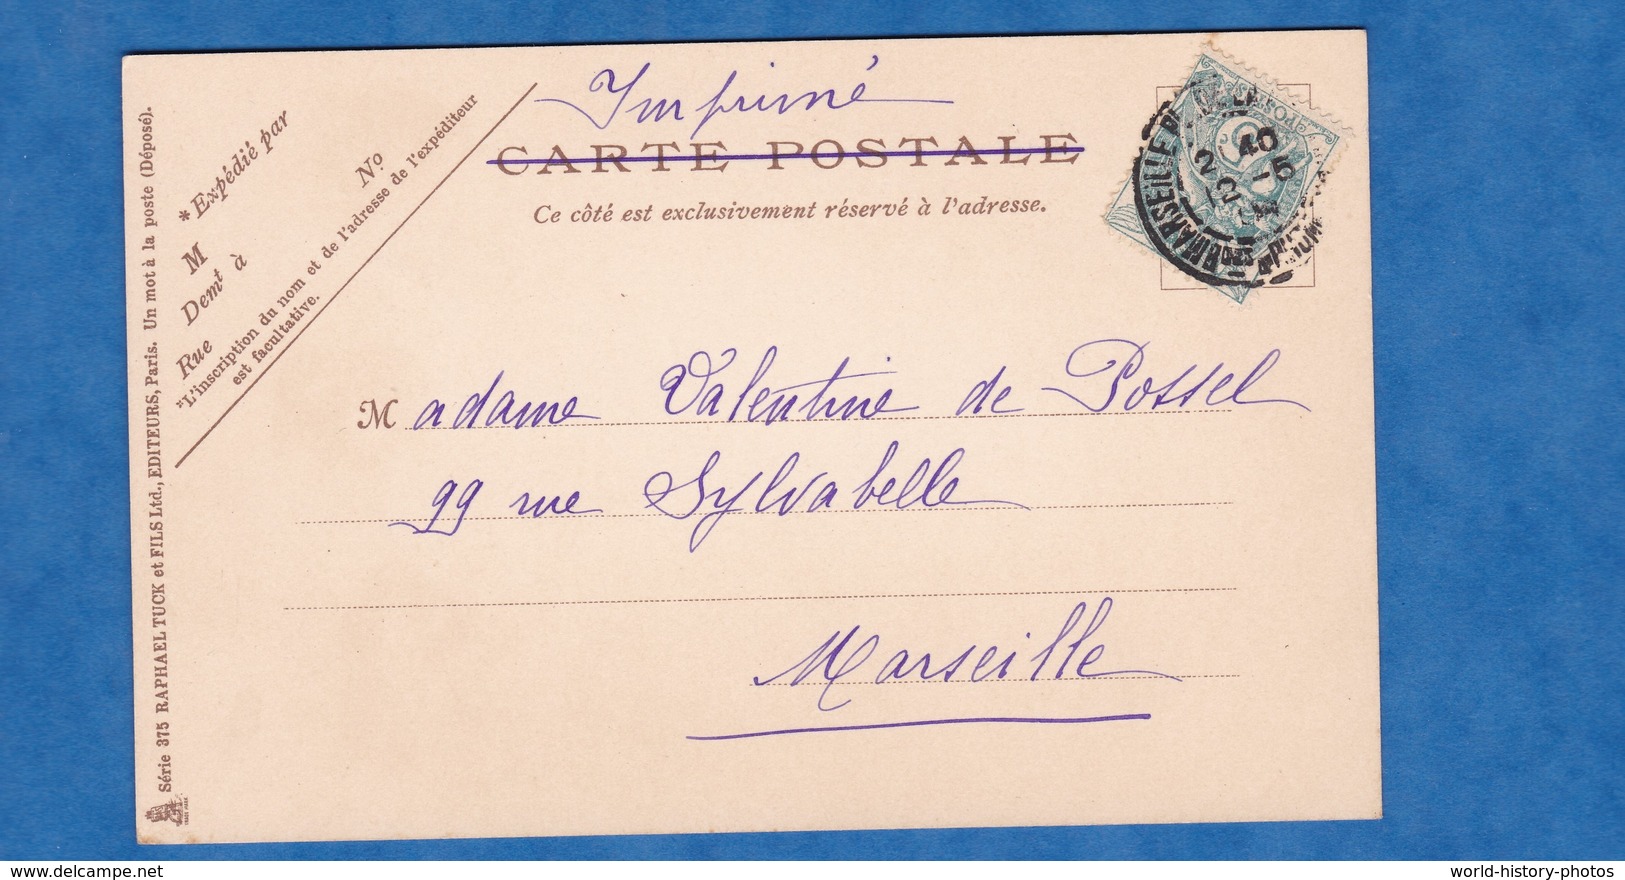 Imprimé
CARTE POSTALE
Ce côté est exclusivement réservé à l'adresse.
* Expédié par
M
Demt à
Rue
No
*L'inscription du nom et de l'adresse de l'expéditeur
est facultative.
Série 375 RAPHAEL TUCK et FILS Ltd., EDITEURS, Paris. Un mot à la poste (Déposé).
TRADE MARK
MARSEILLE
2 40
12 -5
Madame Valentine de Possel
99 rue Sylvabelle
Marseille
delcampe.net
world-history-photos